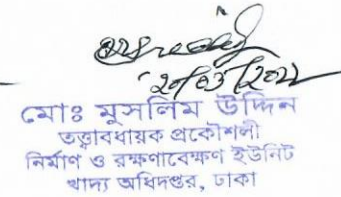 20/03/2022
মোঃ মুসলিম উদ্দিন
তত্ত্বাবধায়ক প্রকৌশলী
নির্মাণ ও রক্ষণাবেক্ষণ ইউনিট
খাদ্য অধিদপ্তর, ঢাকা